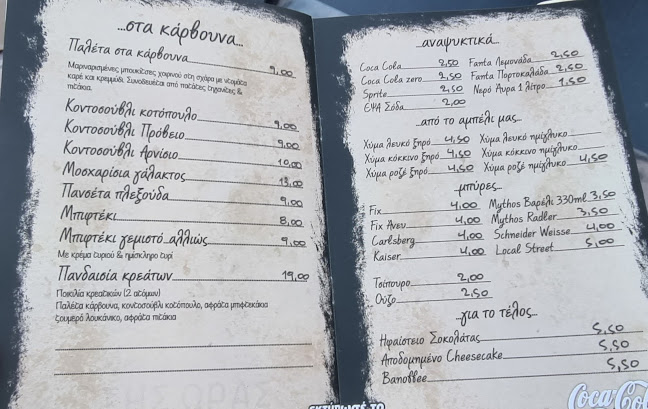 ...στα κάρβουνα...
Παλέτα στα κάρβουνα 9,00
Μαριναρισμένες μπουκίτσες χοιρινού στη σχάρα με ντομάτα
καρέ και κρεμμύδι. Συνοδεύεται από πατάτες τηγανιτές &
πιτάκια.
Κοντοσούβλι κοτόπουλο 9,00
Κοντοσούβλι Πρόβειο 9,00
Κοντοσούβλι Αρνίσιο 10,00
Μοσχαρίσια γάλακτος 13,00
Πανσέτα πλεξούδα 9,00
Μπιφτέκι 8,00
Μπιφτέκι γεμιστό...αλλιώς 9,00
Με κρέμα τυριού & ημίσκληρο τυρί
Πανδαισία κρεάτων 19,00
Ποικιλία κρεατικών (2 ατόμων)
Παλέτα κάρβουνα, κοντοσούβλι κοτόπουλο, αφράτα μπιφτεκάκια
ζουμερό λουκάνικο, αφράτα πιτάκια
αναψυκτικά..
Coca Cola 2,50 Fanta Λεμονάδα 2,50
Coca Cola zero 2,50 Fanta Πορτοκαλάδα 2,50
Sprite 2,50 Νερό Αυρα 1 λίτρο 1,50
ΕΨΑ Σόδα 2,00
..από το αμπέλι μας..
Χύμα λευκό ξηρό 4,50 Χύμα λευκό ημίγλυκο
Χύμα κόκκινο ξηρό 4,50 Χύμα κόκκινο ημίγλυκο
Χύμα ροζέ ξηρό 4,50 Χύμα ροζέ ημίγλυκο 4,50
..μπύρες..
Fix 4,00 Mythos Βαρέλι 330ml 3,50
Fix Ανευ 4,00 Mythos Radler 3,50
Carlsberg 4,00 Schneider Weisse 4,00
Kaiser 4,00 Local Street 5,00
Τσίπουρο 2,00
Ούζο 2,50
..για το τέλος..
Ηφαίστειο Σοκολάτας 5,50
Αποδομημένο Cheesecake 5,50
Banoffee 5,50
Coca-Col